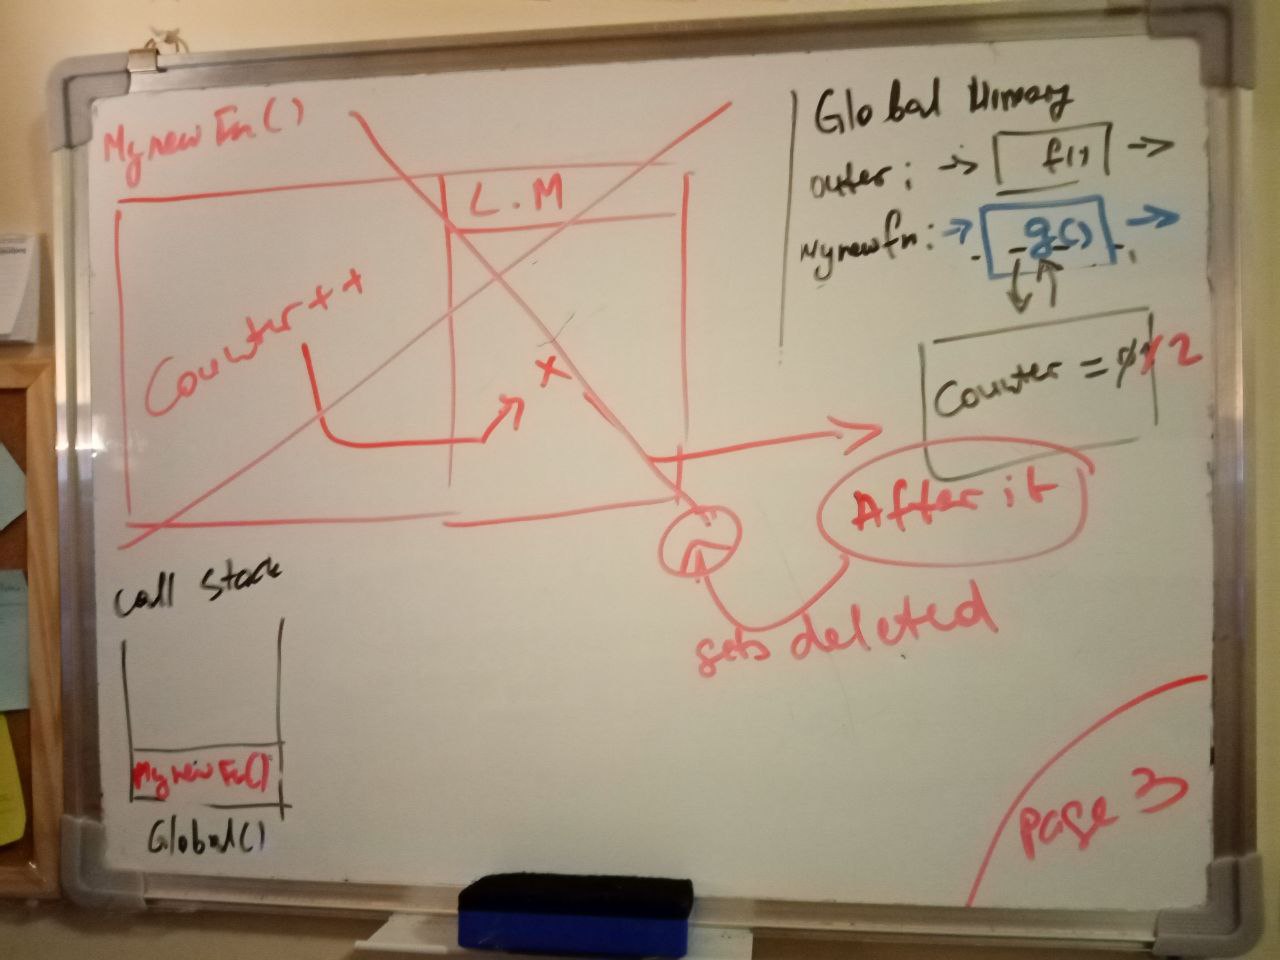 Mynew Fn()
L.M
Counter++
x
Global Mimory
outer: → f() →
Mynewfn: → g() →
Counter = 0 1 2
After it
gets deleted
Call Stack
Mynew Fn()
Global()
Page 3